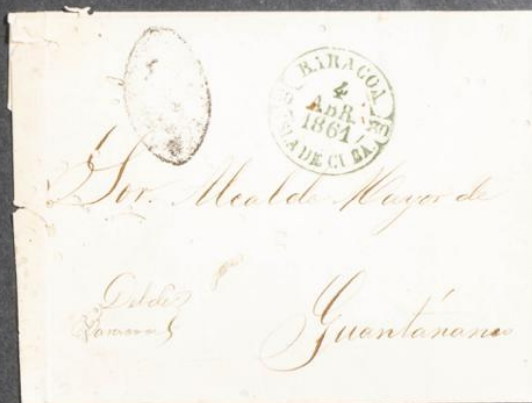 BARACOA
4
ABR.
1861
ISLA DE CUBA
Sor. Alcalde Mayor de
Guantánamo